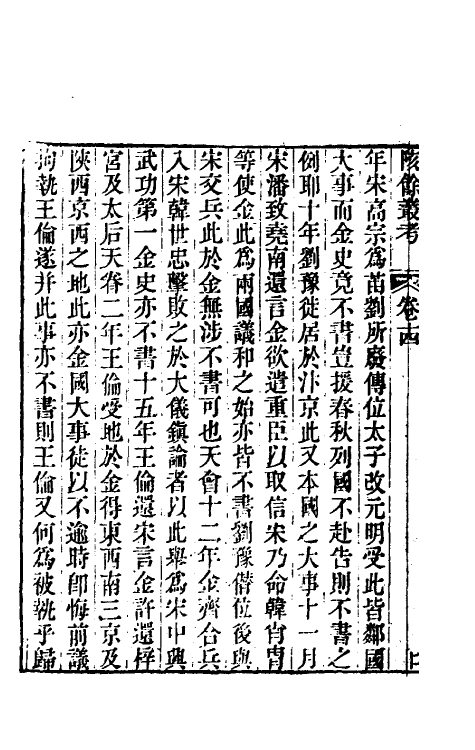 陔餘叢考 卷十四
年宋高宗爲苗劉所廢傳位太子改元明受此皆鄰國
大事而金史竟不書豈援春秋列國不赴告則不書之
例耶十年劉豫徙居於汴京此又本國之大事十一月
宋潘致堯南還言金欲遣重臣以取信宋乃命韓肖胄
等使金此爲兩國議和之始亦皆不書劉豫僭位後與
宋交兵此於金無涉不書可也天會十二年金齊合兵
入宋韓世忠擊敗之於大儀鎮論者以此舉爲宋中興
武功第一金史亦不書十五年王倫還宋言金許還梓
宮及太后天眷二年王倫受地於金得東西南三京及
陝西京西之地此亦金國大事徒以不逾時卽悔前議
拘執王倫遂幷此事亦不書則王倫又何爲被執乎歸